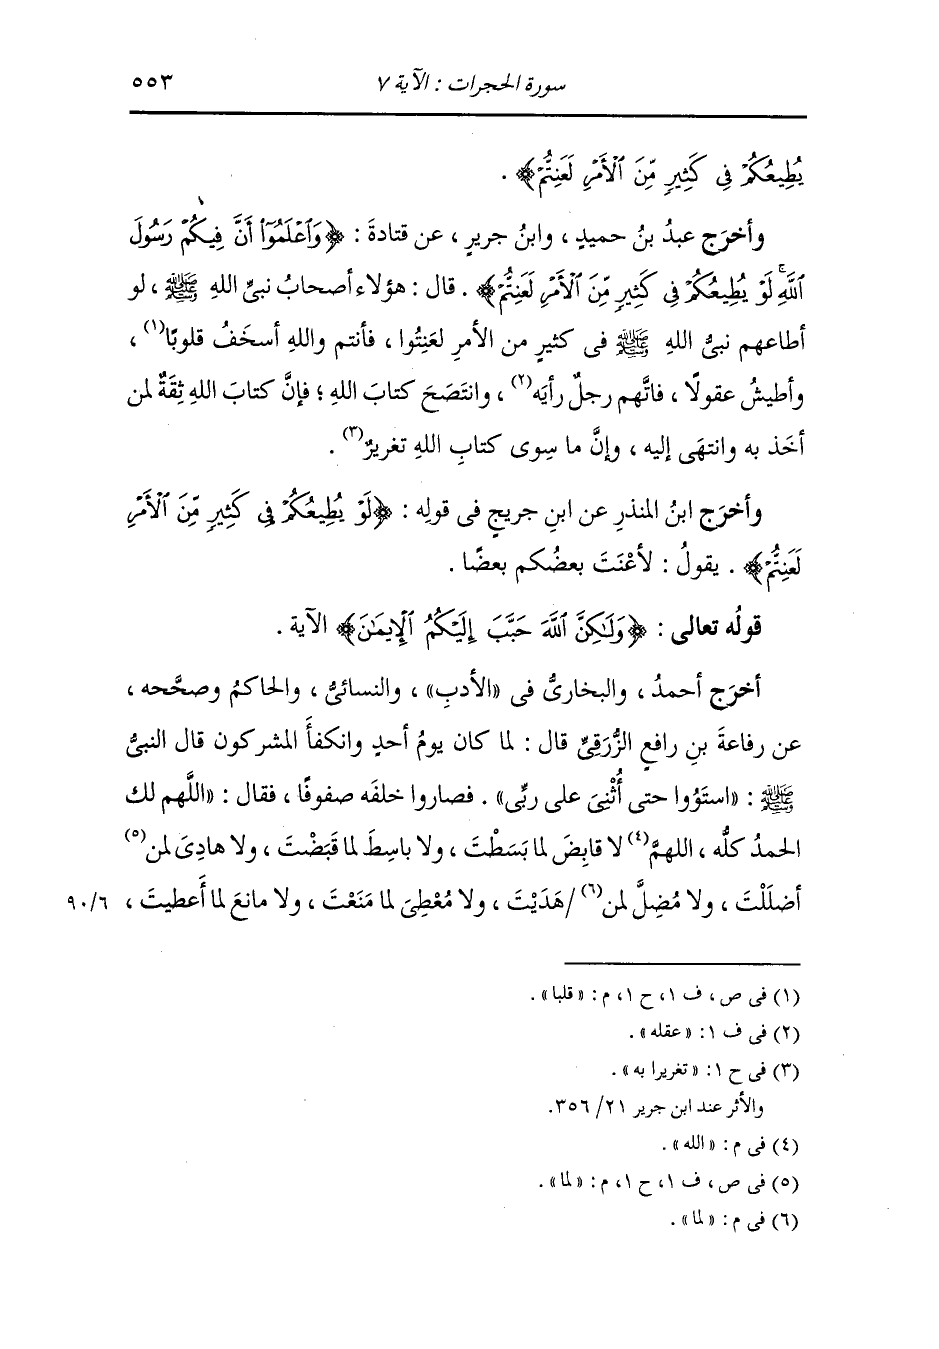 سورة الحجرات : الآية ٧
٥٥٣
يُطِيعُكُمْ فِى كَثِيرٍ مِّنَ ٱلْأَمْرِ لَعَنِتُّمْ﴾ .
وأخرَج عبدُ بنُ حميدٍ ، وابنُ جريرٍ ، عن قتادةَ : ﴿وَٱعْلَمُوٓا۟ أَنَّ فِيكُمْ رَسُولَ
ٱللَّهِ ۚ لَوْ يُطِيعُكُمْ فِى كَثِيرٍ مِّنَ ٱلْأَمْرِ لَعَنِتُّمْ﴾ . قال : هؤلاء أصحابُ نبىِّ اللهِ ﷺ ، لو
أطاعهم نبىُّ اللهِ ﷺ فى كثيرٍ من الأمرِ لعَنِتُوا ، فأنتم واللهِ أسخَفُ قلوبًا(١) ،
وأطيشُ عقولًا ، فاتَّهم رجلٌ رأيَه(٢) ، وانتَصَحَ كتابَ اللهِ ؛ فإنَّ كتابَ اللهِ ثِقَةٌ لمن
أخَذ به وانتهَى إليه ، وإنَّ ما سِوى كتابِ اللهِ تغريرٌ(٣) .
وأخرَج ابنُ المنذرِ عن ابنِ جريجٍ فى قولِه : ﴿لَوْ يُطِيعُكُمْ فِى كَثِيرٍ مِّنَ ٱلْأَمْرِ
لَعَنِتُّمْ﴾ . يقولُ : لأَعْنَتَ بعضُكم بعضًا .
قولُه تعالى : ﴿وَلَٰكِنَّ ٱللَّهَ حَبَّبَ إِلَيْكُمُ ٱلْإِيمَٰنَ﴾ الآية .
أخرَج أحمدُ ، والبخارىُّ فى «الأدبِ» ، والنسائىُّ ، والحاكمُ وصحَّحه ،
عن رفاعةَ بنِ رافعٍ الزُّرَقِىِّ قال : لما كان يومُ أحدٍ وانكفأَ المشركون قال النبىُّ
ﷺ : «استَوُوا حتى أُثْنِىَ على ربِّى» . فصاروا خلفَه صفوفًا ، فقال : «اللَّهم لك
الحمدُ كلُّه ، اللهمَّ(٤) لا قابِضَ لما بَسَطْتَ ، ولا باسِطَ لما قَبَضْتَ ، ولا هادِىَ لمن(٥)
أضلَلْتَ ، ولا مُضِلَّ لمن(٦) /هَدَيْتَ ، ولا مُعْطِىَ لما مَنَعْتَ ، ولا مانعَ لما أَعطيتَ ، ٩٠/٦
(١) فى ص ، ف ١، ح ١، م : « قلبا » .
(٢) فى ف ١: « عقله » .
(٣) فى ح ١: « تغريرا به » .
والأثر عند ابن جرير ٢١/ ٣٥٦.
(٤) فى م : « الله » .
(٥) فى ص ، ف ١، ح ١، م : « لما » .
(٦) فى م : « لما » .